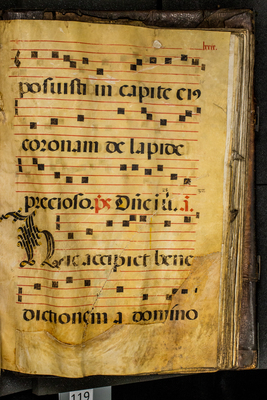 posuisti in capite ei9
coronam de lapide
precioso. ps. Dñe i ũ. i.
Hic accipiet bene
dictionem a domino
119